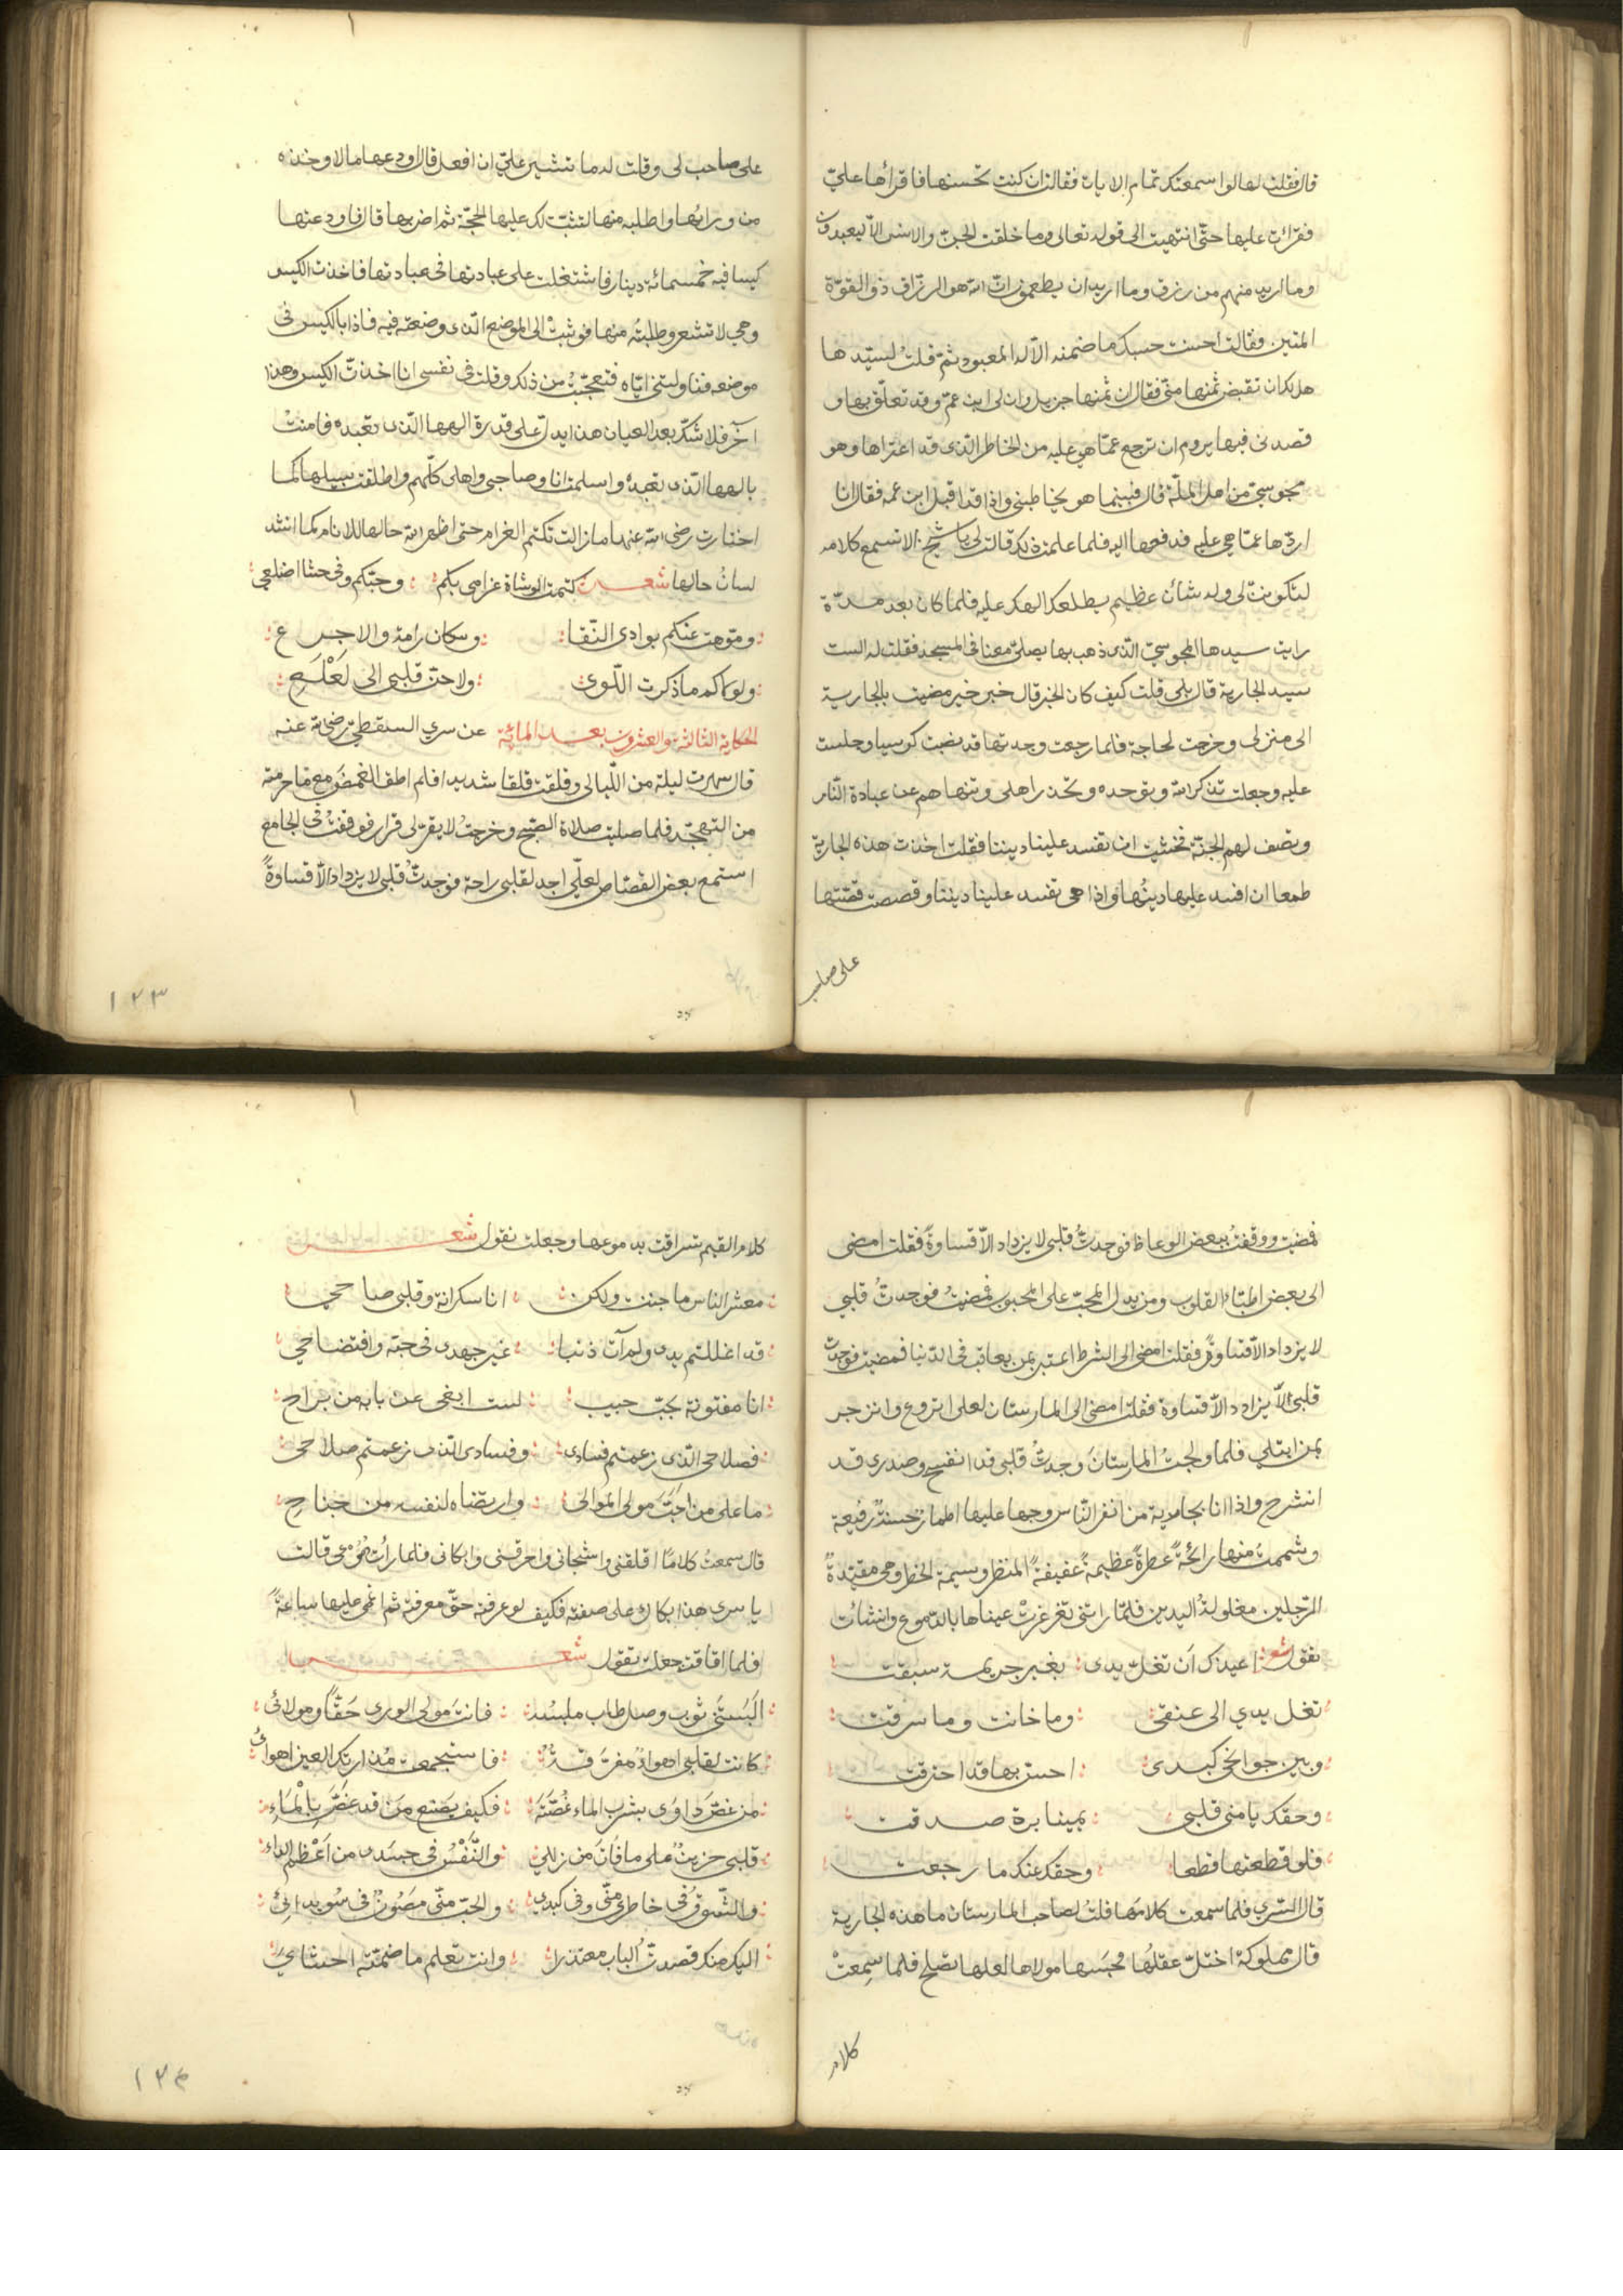 قال فقلت لها لو اسمعتك تمام الايات فقالت ان كنت تحسنها فاقرأها عليّ
فقرأت عليها حتّى انتهيت الى قوله تعالى وما خلقت الجنّ والانس الّا ليعبدون
وما اريد منهم من رزق وما اريد ان يطعمون انّ الله هو الرزّاق ذو القوّة
المتين فقالت احسنت حسبك ما ضمنه الاله المعبود ثمّ قلتُ لسيّدها
هل لك ان تقبض ثمنها منّي فقال ان ثمنها جزيل وان لى ابن عمّ وقد تعلّق بها و
قصدنى فيها يروم ان ترجع عمّا هي عليه من الخاطر الذى قد اعتراها وهو
مجوسيّ من اهل الملّة قال فبينما هو يخاطبنى واذا قد اقبل ابن عمه فقال انا
اردّها عمّا هي عليه فدفعها اليه فلما علمت ذلك قالت لى يا شيخ لا تسمع كلامه
لتكوننّ لى وله شأن عظيم يطلعك الهك عليه فلما كان بعد مدّة
رايت سيدها المجوسيّ الذى ذهب بها يصلّى معنا فى المسجد فقلت له الست
سيد الجارية قال بلى قلت كيف كان الخبر قال خبر خير مضيت بالجارية
الى منزلى وخرجت لحاجة فلما رجعت وجدتها قد نصبت كرسيا وجلست
عليه وجعلت تذكر الله وتوحده وتحذر اهلى وتنهاهم عن عبادة النّار
وتصف لهم الجنّة فخشيت ان تفسد علينا ديننا فقلت اخذت هذه الجارية
طمعا ان افسد عليها دينُها واذا هى تفسد علينا ديننا وقصصت قصّتها
على صاحب
على صاحب لى وقلت له ما تشير عليّ ان افعل قال اودعها مالا وخذه
من ورائها واطلبه منها لتثبّت لك عليها الحجّة ثم اضربها قال فاودعتها
كيسا فيه خمسمائة دينار فاشتغلت على عبادتها فى عبادتها فاخذت الكيس
وهى لا تشعر وطلبتُه منها فوثبتْ الى الموضع الّذى وضعته فيه فاذا بالكيس فى
موضعه فناولتنى ايّاه فتعجّبتُ من ذلك وقلت فى نفسى انا اخذت الكيس وهذا
آخر فلا شكّ بعد العيان هذا يدلّ على قدرة الهها الّذى تعبده فامنتْ
بالهها الّذى تعبدُه واسلمت انا وصاحبى واهلى كلّهم واطلقت سبيلها كما
اختارت رضى الله عنها ما زالت تكتم الغرام حتى اظهر الله حالها للانام كما انشد
لسانُ حالها شعر كتمت الوشاة غرامى بكم وحبّكم فى حشا اضلعي
وموّهت عنكم بوادى النّقا وسكان رامة والاجرع
ولولاكم ما ذكرت اللّوى ولا حنّ قلبى الى لَعْلَعِ
الحكاية الثالثة والعشرون بعد المائة عن سري السقطى رضى الله عنه
قال سهرت ليلة من اللّيالى وقلقت قلقا شديدا فلم اطف الغمضَ مع ما حرمته
من التهجّد فلما صليت صلاة الصّبح وخرجتُ لا يقرّ لى قرار فوقفتُ فى الجامع
استمع بعض القصّاص لعلّى اجد لقلبى راحة فوجدتُ قلبى لا يزداد الاّ قساوةً
١٢٣
فمضيت ووقفتُ ببعض الوعاظ فوجدتُ قلبى لا يزداد الاّ قساوةً فقلت امضى
الى بعض اطبّاء القلوب ومن يدلّ المحبّ على المحبوب فمضيتُ فوجدتُ قلبي
لا يزداد الاّ قساوةً فقلت امضى الى الشرط اعتبر بمن يعاقب فى الدّنيا فمضيت فوجدت
قلبى لا يزداد الاّ قساوة فقلت امضى الى المارستان لعلى اتروع وانزجر
بمن ابتلى فلما ولجتُ المارستانَ وجدتُ قلبى قد انفسح وصدرى قد
انشرح واذا انا بجارية من انضر النّاس وجها عليها اطمارٌ حسنةٌ رفيعة
وشممتُ منها رائحةً عطرةً عظيمةً عفيفةً المنظر وسيمة الخطر وهى مقيّدةُ
الرّجلين مغلولةُ اليدين فلمّا راتنى تغرغرتْ عيناها بالدّموع وانشأت
تقول شعر اعيذك ان تغلّ يدى بغير جريمة سبقت
تغل يدي الى عنقى وما خانت وما سرقت
وبين جوانحى كبدى احسّ بها قد احترقت
وحقك يا منى قلبى يمينا برة صدقت
فلو قطعتها قطعا وحقك عنك ما رجعت
قال السّريّ فلما سمعت كلامها قلتُ لصاحب المارستان ما هذه الجارية
قال مملوكة اختلّ عقلُها فحبَسها مولاها لعلها تصلح فلما سمِعتْ
كلام
كلام القيم شرقت بدموعها وجعلت تقول شعر
معشر الناس ما جننت ولكن انا سكرانة وقلبى صاحي
قد اغللتم يدى ولم آت ذنبا غير جهدى فى حبّه وافتضاحي
انا مفتونة بحبّ حبيب لست ابغى عن بابه من براح
فصلاحى الّذى زعمتم فسادى وفسادى الّذى زعمتم صلاحى
ما على من احَبّ مولى الموالى وارتضاه لنفسه من جناحِ
قال سمعتُ كلامًا اقلقنى واشجانى واحرقنى وابكانى فلما رأت دموعى قالت
يا سرى هذا بكاك على صفته فكيف لو عرفته حقّ معرفته ثم اغمى عليها ساعةً
فلما افاقت جعلت تقول شعر
البَستَنى ثوبَ وصلٍ طاب ملبسُه فانتَ مولى الورى حَقًّا ومولائى
كانت لقلبى اهواءٌ مفرّقةٌ فاستجمعت مُذ راتك العين اهوائى
من غصَّ داوى بشرب الماء غُصَّتَهُ فكيف يصنع من قد غصَّ بِالْمَاءِ
قلبى حزينٌ على ما فاتَ من زللى والنَّفْسُ فى جسَدى من اَعْظمِ الداء
والشّوقُ فى خاطرى منّى وفى كبدي والحبّ منّى مصَونٌ فى سُويدائِى
اليك منك قصدتُ الباب معتذرا وانت تعلم ما ضمّته احشائي
١٢٤